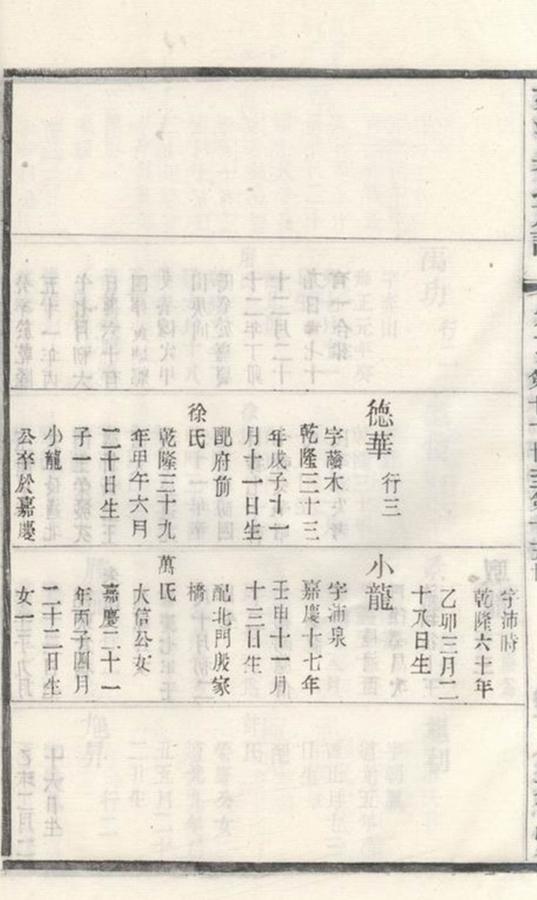 德華 行三
字藩木
乾隆三十三
年戊子十一
月十一日生
配府前
徐氏
乾隆三十九
年甲午六月
二十日生
子一
小龍
公卒於嘉慶
字沛時
乾隆六十年
乙卯三月二
十八日生
小龍
字浦泉
嘉慶十七年
壬申十一月
十三日生
配北門殷家
橋
萬氏
大信公女
嘉慶二十一
年丙子四月
二十二日生
女一